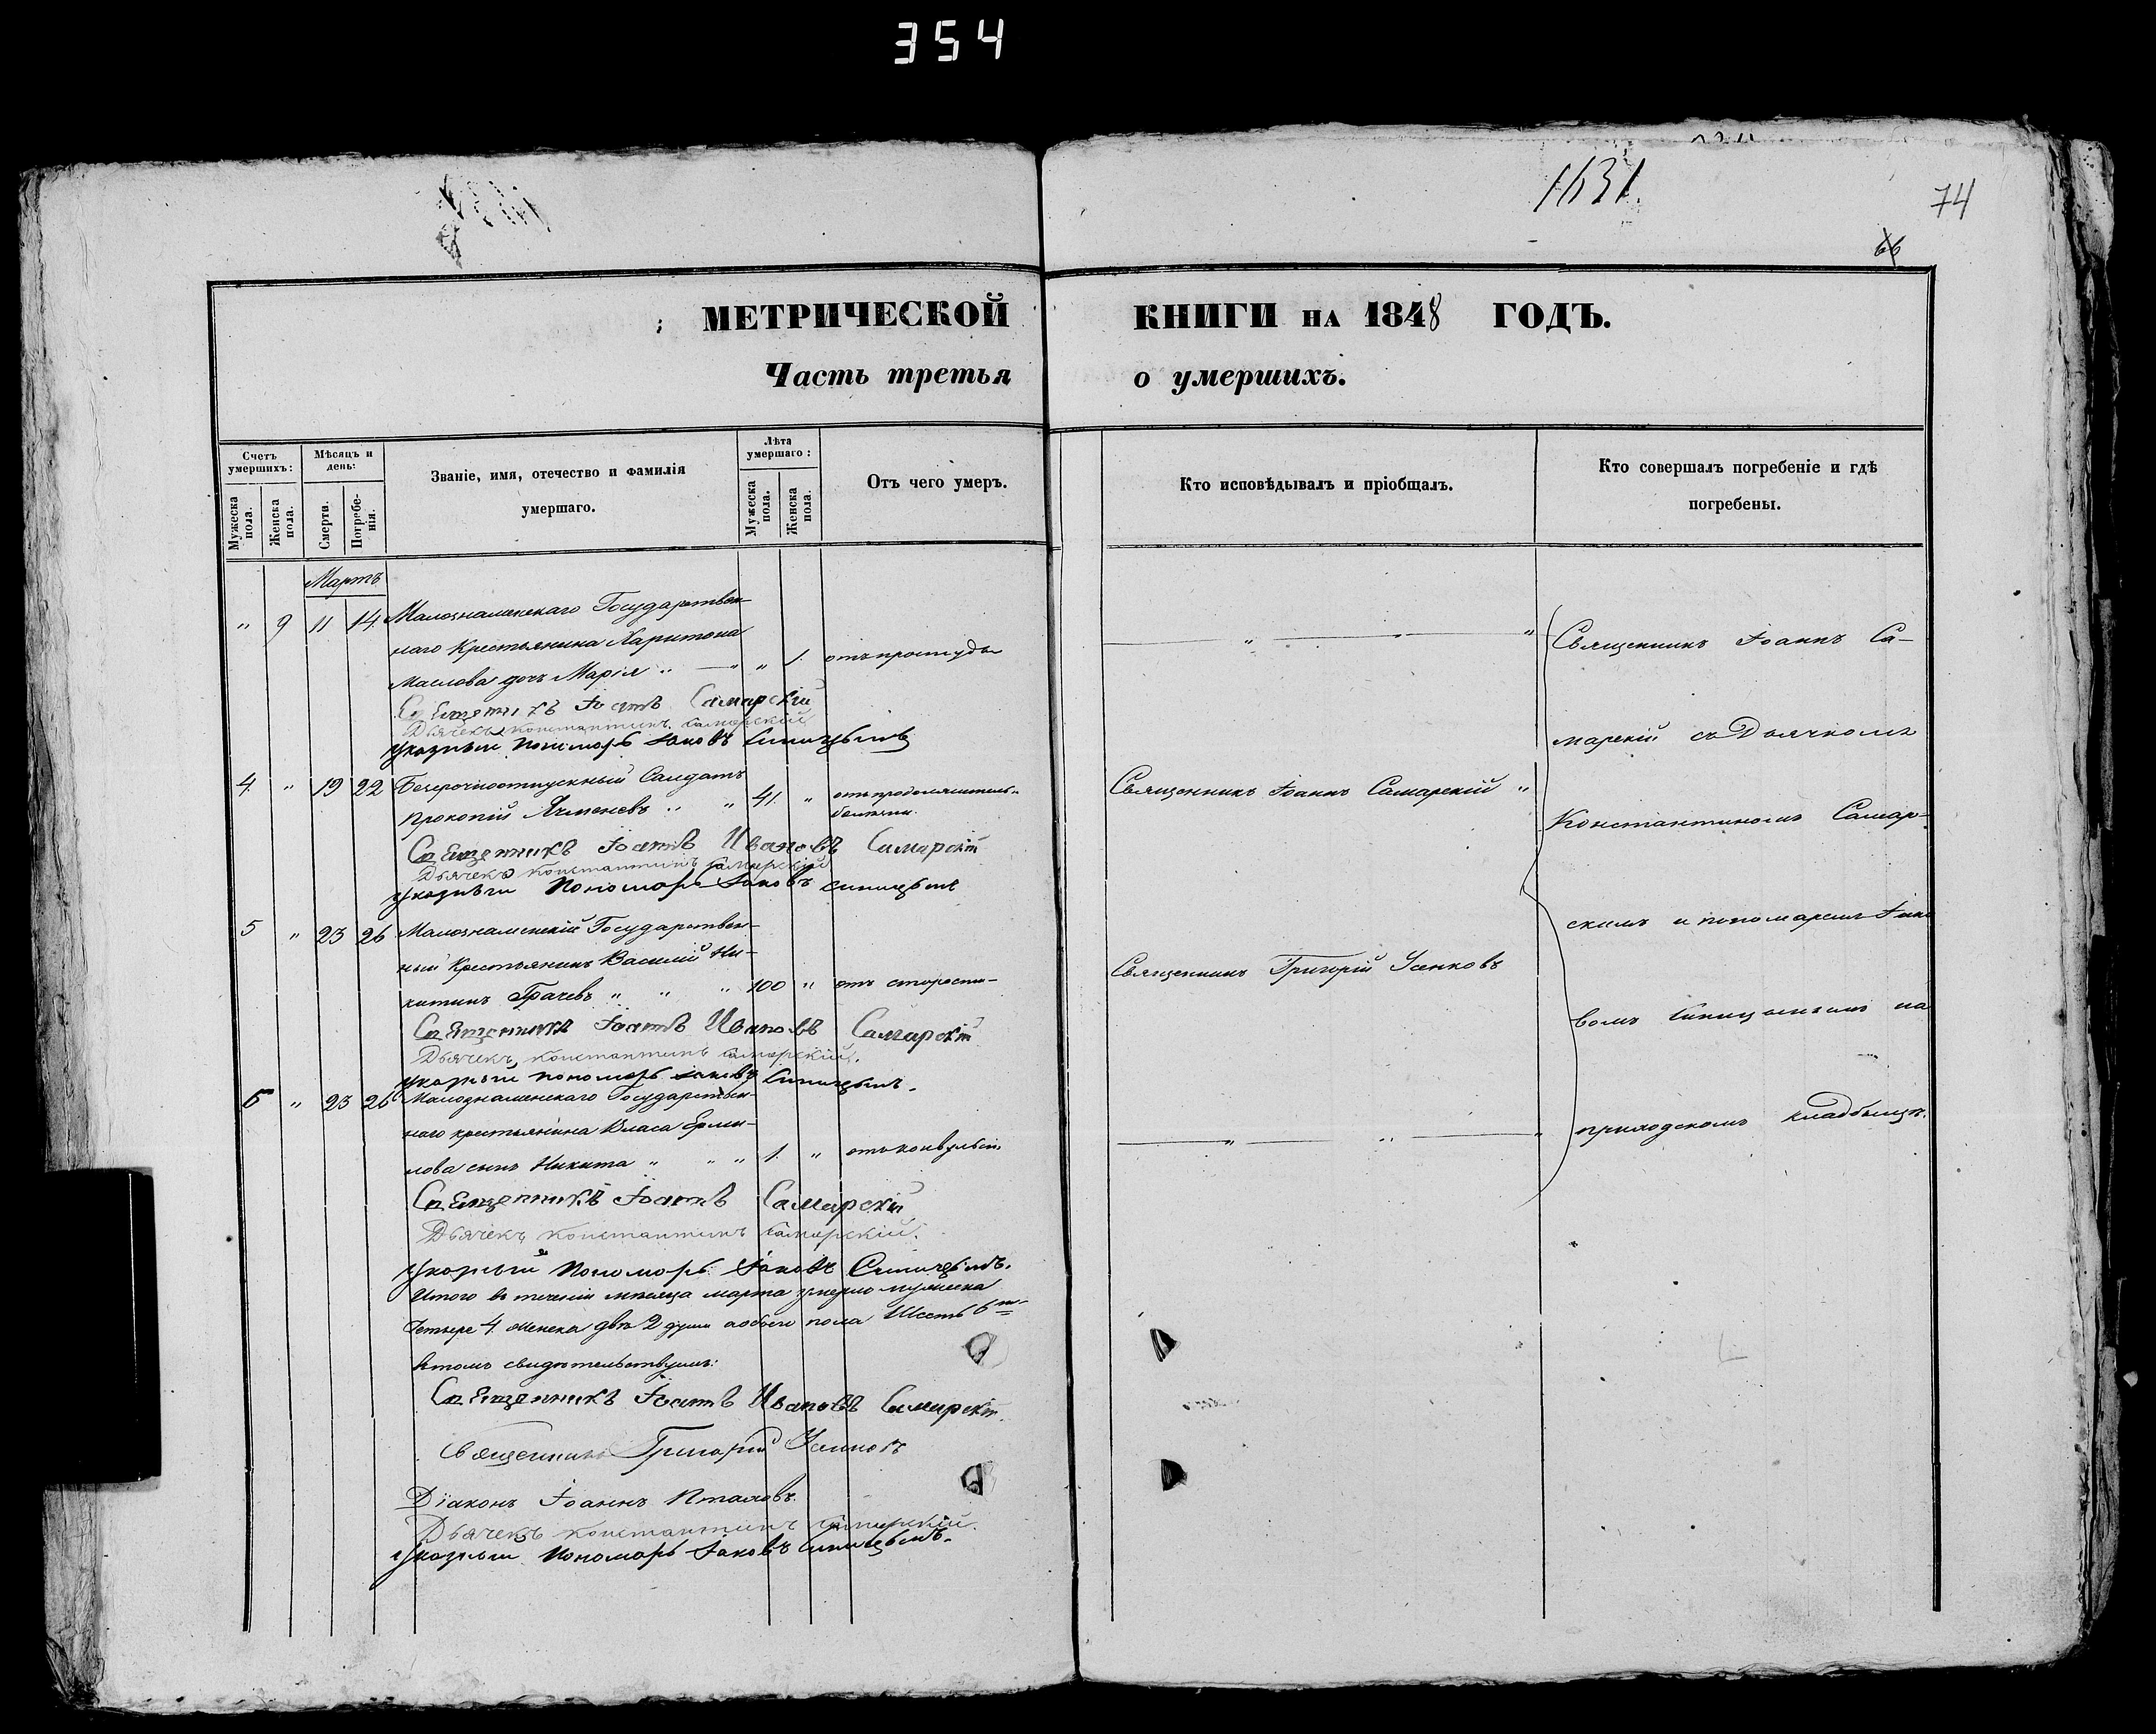 354
1631.
74
66
МЕТРИЧЕСКОЙ КНИГИ НА 1848 ГОДЪ.
Часть третья о умершихъ.
Счетъ умершихъ:
Мужеска пола.
Женска пола.
Мѣсяцъ и день:
Смерти.
Погребенія.
Званіе, имя, отечество и фамилія
умершаго.
Лѣта умершаго:
Мужеска пола.
Женска пола.
Отъ чего умеръ.
Кто исповѣдывалъ и пріобщалъ.
Кто совершалъ погребеніе и гдѣ
погребены.
Мартъ
" 9 11 14 Малознаменскаго Государствен-
наго Крестьянина Харитона
Маслова дочь Марія " — " " 1. отъ простуды
Священникъ Іоаннъ Самарскій
Дьячекъ Константинъ Самарскій
Указный Пономарь Іаковъ Синицынъ
4. " 19 22 Безсрочноотпускный Салдатъ
Прокопій Ячменевъ " " 41. " отъ продолжительн.
болезни.
Священникъ Іоаннъ Ивановъ Самарскій
Дьячекъ Константинъ Самарскій
Указный Пономарь Іаковъ Синицынъ
5 " 23 26 Малознаменскій Государствен-
ный Крестьянинъ Василій Ни-
китинъ Грачевъ " " " 100 " отъ старости-
Священникъ Іоаннъ Ивановъ Самарскій
Дьячекъ Константинъ Самарскій.
Указный Пономарь Іаковъ Синицынъ.
6 " 23 26 Малознаменскаго Государствен-
наго крестьянина Власа Ерми-
лова сынъ Никита " " " 1. " отъ конвульсіи
Священникъ Іоаннъ Самарскій
Дьячекъ Константинъ Самарскій.
Указный Пономарь Іаковъ Синицынъ.
Итого въ теченіи мѣсяца марта умерло мужеска
Четыре 4. женска двѣ 2 души а обоего пола Шесть 6
Въ томъ свидѣтельствуемъ:
Священникъ Іоаннъ Ивановъ Самарскій.
Священникъ Григорій Усинковъ
Діаконъ Іоаннъ Птаховъ.
Дьячекъ Константинъ Самарскій.
Указный Пономарь Іаковъ Синицынъ.
Священникъ Іоаннъ Самарскій "
Священникъ Григорій
Священникъ Іоаннъ Са-
марскій съ Дьячкомъ
Константиномъ Самар-
скимъ и пономаремъ Іако
вомъ Синицынымъ на
приходскомъ кладбищѣ.